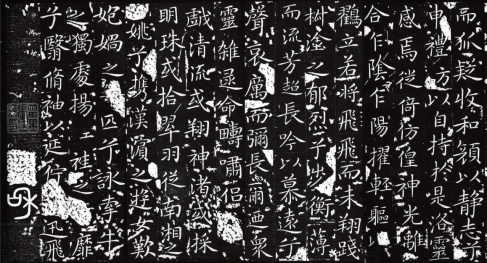 而狐疑收和顏以靜志兮
申禮防以自持於是洛靈
感焉徙倚彷徨神光離
合乍陰乍陽擢輕軀以
鶴立若將飛飛而未翔踐
椒塗之郁烈兮步衡薄
而流芳超長吟以慕遠兮
聲哀厲而彌長爾迺眾
靈雜遝命疇嘯侶
戲清流或翔神渚或採
明珠或拾翠羽從南湘之
姚兮攜漢濱之遊女歎
妃媧之匹兮詠牽牛
之獨處揚袿之靡
兮翳脩袖以延佇迅飛